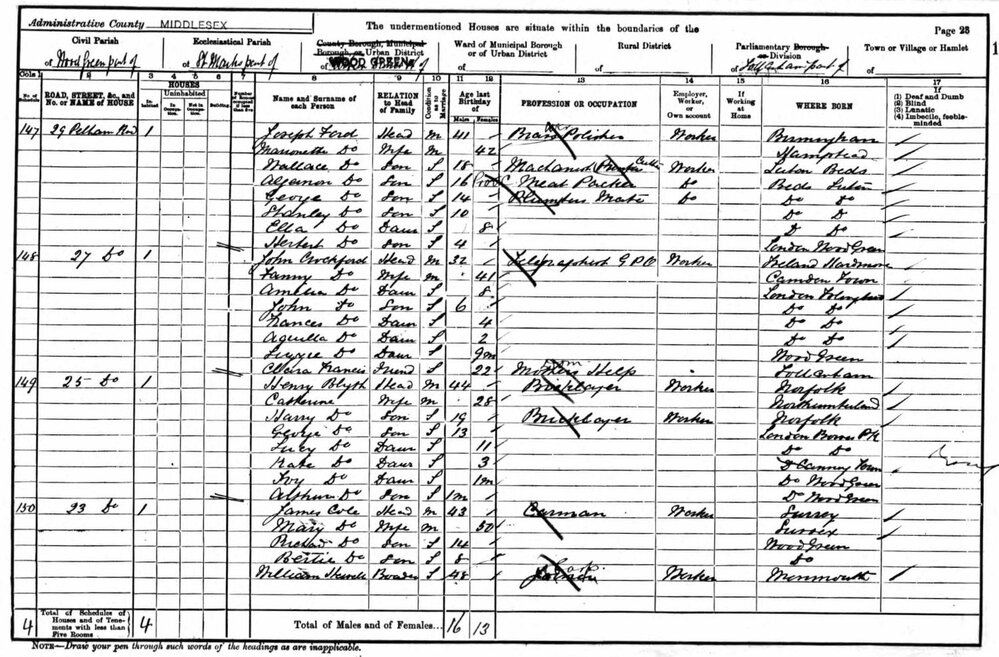 Administrative County MIDDLESEX
The undermentioned Houses are situate within the boundaries of the
Page 23
1
Civil Parish of Wood Green part of
Ecclesiastical Parish of St Marks part of
County Borough, Municipal Borough, or Urban District of WOOD GREEN
Ward of Municipal Borough or of Urban District of
Rural District of
Parliamentary Borough or Division of Tottenham part of
Town or Village or Hamlet of
Cols 1 2 3 4 5 6 7 8 9 10 11 12 13 14 15 16 17
No. of Schedule
ROAD, STREET, &c., and No. or NAME of HOUSE
HOUSES
Inhabited
Uninhabited
In Occupation
Not in Occupation
Building
Number of Rooms occupied if less than five
Name and Surname of each Person
RELATION to Head of Family
Condition as to Marriage
Age last Birthday of
Males
Females
PROFESSION OR OCCUPATION
Employer, Worker, or Own account
If Working at Home
WHERE BORN
If (1) Deaf and Dumb (2) Blind (3) Lunatic (4) Imbecile, feeble-minded
147 29 Pelham Rd 1 Joseph Ford Head M 41 Brass Polisher Worker Birmingham
Do Wife M 42 Hampstead
Wallace Do Son S 18 Worker Luton Beds
Do Son S 16 Meat Packer Do Beds Luton
George Do Son S 14 Plumbers Mate Do Do Do
Stanley Do Son S 10 Do D
Ella Do Daur S 8 D Do
Herbert Do Son S 4 London Wood Green
148 27 Do 1 John Crockford Head M 32 Telegraphist G.P.O Worker Ireland
Fanny Do Wife M 41 Camden Town
Amelia Do Daur S 8 London Islington
John Do Son S 6 Do Do
Frances Do Daur S 4 Do Do
Aquilla Do Daur S 2 Do Do
Do Daur S 9m Wood Green
Francis Friend S 22 Mothers Help Tottenham
149 25 Do 1 Henry Blyth Head M 44 Bricklayer Worker Norfolk
Catherine Do Wife M 28 Northumberland
Harry Do Son S 19 Bricklayer Worker Norfolk
George Do Son S 13 London Bowes Pk
Lucy Do Daur S 11 Do Do
Kate Do Daur S 3 D Canney Town
Ivy Do Daur S 1m Do Wood Green
Arthur Do Son S 1m Do Wood Green
150 23 Do 1 James Cole Head M 43 Carman Worker Surrey
Mary Do Wife M 50 Sussex
Richard Do Son S 14 Wood Green
Bertie Do Son S 8 Do
William Boarder S 48 Worker Monmouth
4 Total of Schedules of Houses and of Tenements with less than Five Rooms 4 Total of Males and of Females... 16 13
NOTE—Draw your pen through such words of the headings as are inapplicable.